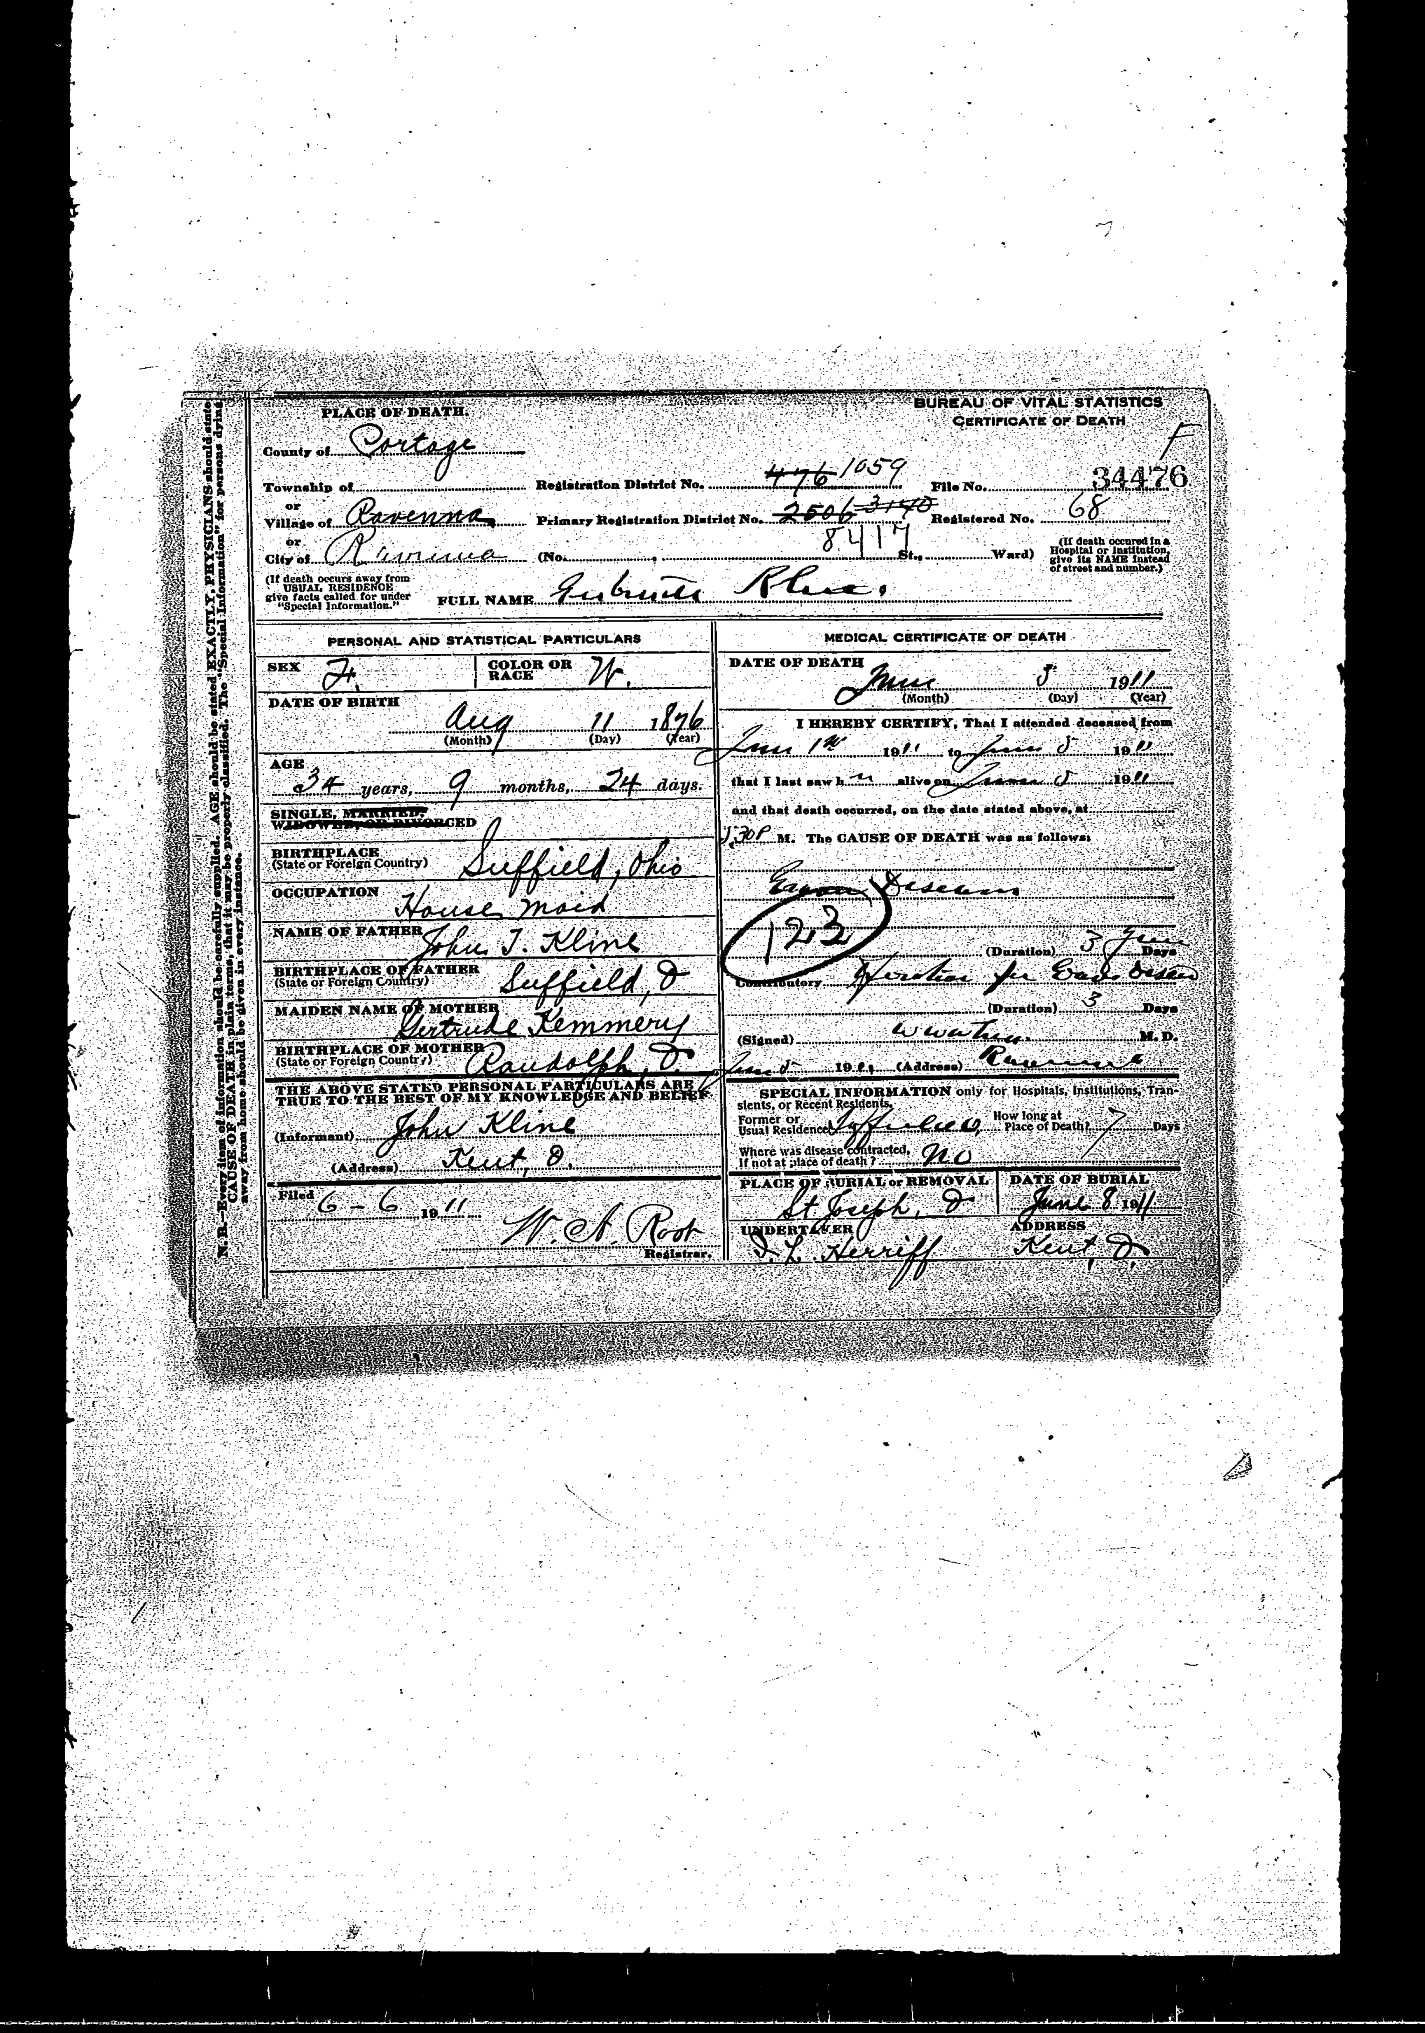 PLACE OF DEATH.
BUREAU OF VITAL STATISTICS
CERTIFICATE OF DEATH
County of Portage
F
Township of
Registration District No. 476 1059
File No. 34476
or
Village of Ravenna
Primary Registration District No. 2506 3140
Registered No. 68
or
City of Ravenna (No. , 8417 St., Ward)
(If death occured in a Hospital or Institution, give its NAME instead of street and number.)
(If death occurs away from USUAL RESIDENCE give facts called for under "Special Information.")
FULL NAME
PERSONAL AND STATISTICAL PARTICULARS
SEX F.
COLOR OR RACE W.
DATE OF BIRTH
Aug 11 1876
(Month) (Day) (Year)
AGE
34 years, 9 months, 24 days.
SINGLE, MARRIED,
WIDOWED, OR DIVORCED
BIRTHPLACE
(State or Foreign Country) Suffield, Ohio
OCCUPATION House maid
NAME OF FATHER John T. Kline
BIRTHPLACE OF FATHER
(State or Foreign Country) Suffield, O
MAIDEN NAME OF MOTHER Gertrude Kemmery
BIRTHPLACE OF MOTHER
(State or Foreign Country) Randolph, O.
THE ABOVE STATED PERSONAL PARTICULARS ARE
TRUE TO THE BEST OF MY KNOWLEDGE AND BELIEF
(Informant) John Kline
(Address) Kent, O.
Filed 6-6 1911
W. A. Root
Registrar.
MEDICAL CERTIFICATE OF DEATH
DATE OF DEATH
June 5 1911
(Month) (Day) (Year)
I HEREBY CERTIFY, That I attended deceased from
June 1st 1911 to June 5 1911
that I last saw h alive on June 5 1911
and that death occurred, on the date stated above, at
5.30 P M. The CAUSE OF DEATH was as follows:
123
(Duration) 3 Days
Contributory
(Duration) 3 Days
(Signed) M. D.
June 5 1911 (Address) Ravenna
SPECIAL INFORMATION only for Hospitals, Institutions, Transients, or Recent Residents.
Former or
Usual Residence
How long at
Place of Death? 7 Days
Where was disease contracted,
If not at place of death? no
PLACE OF BURIAL or REMOVAL
St Joseph, O
DATE OF BURIAL
June 8 1911
UNDERTAKER
L. Herriff
ADDRESS
Kent, O.
N. B.—Every item of information should be carefully supplied. AGE should be stated EXACTLY. PHYSICIANS should state
CAUSE OF DEATH in plain terms, that it may be properly classified. The "Special Information" for persons dying
away from home should be given in every instance.